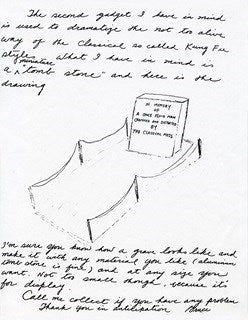 The second gadget I have in mind
is used to dramatize the not too alive
way of the classical so called Kung Fu
styles. What I have in mind is
a miniature "tomb stone" and here is the
drawing
IN MEMORY
OF
A ONCE FLUID MAN
CRAMMED AND DISTORTED
BY
THE CLASSICAL MESS
I'm sure you know how a grave looks like and
make it with any material you like (aluminum
tome stone is fine) and at any size you
want. Not too small though, because it's
for display.
Call me collect if you have any problem
Thank you in anticipation Bruce